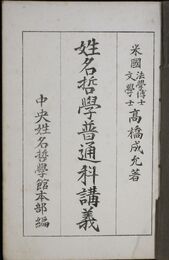 米國法學博士文學士 高橋成允著
姓名哲學普通科講義
中央姓名哲學館本部編